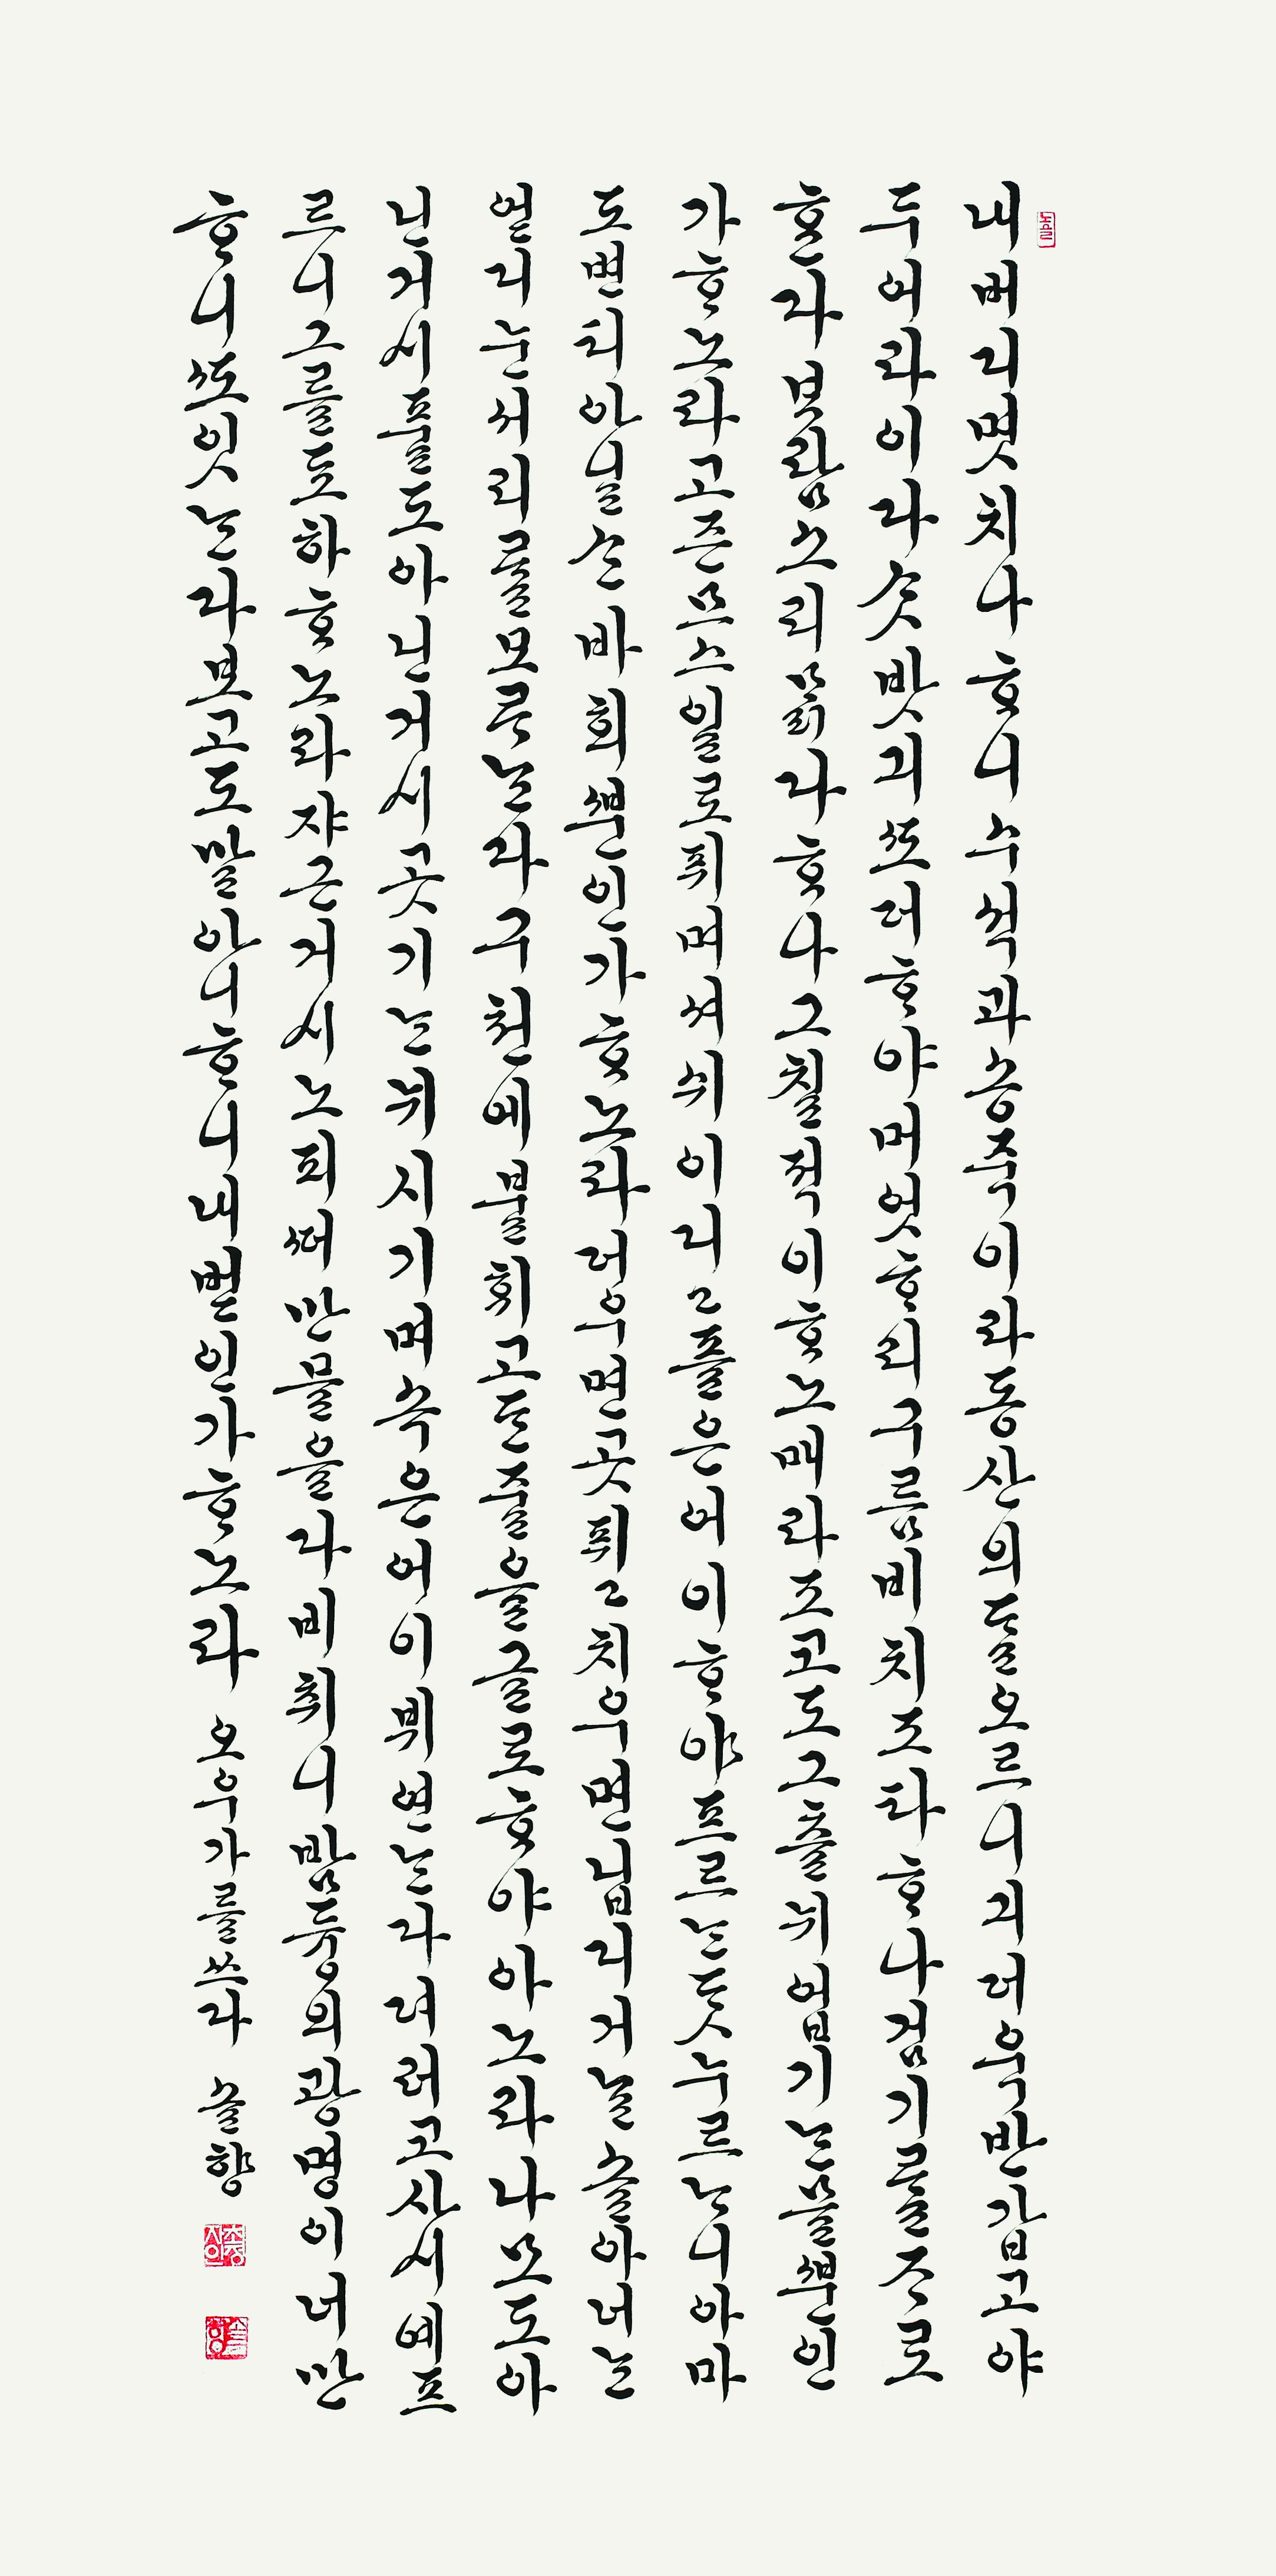 내버디몃치나ᄒᆞ니수셕과숑쥭이라동산의ᄃᆞᆯ오르니긔더욱반갑고야
두어라이다ᄉᆞᆺ밧긔ᄯᅩ더ᄒᆞ야머엇ᄒᆞ리구름비치조타ᄒᆞ나검기ᄅᆞᆯᄌᆞ로
ᄒᆞᆫ다ᄇᆞ람소리ᄆᆞᆰ다ᄒᆞ나그칠적이ᄒᆞ노매라조코도그츨뉘업기ᄂᆞᆫ믈ᄲᅮᆫ인
가ᄒᆞ노라고즌므스일로퓌며셔쉬이디고플은어이ᄒᆞ야프르ᄂᆞᆫᄃᆞᆺ누르ᄂᆞ니아마
도변티아닐ᄉᆞᆫ바회ᄲᅮᆫ인가ᄒᆞ노라더우면곳퓌고치우면닙디거ᄂᆞᆯ솔아너ᄂᆞᆫ
얻디눈서리ᄅᆞᆯ모ᄅᆞᄂᆞᆫ다구쳔에불휘고ᄃᆞᆫ줄을글로ᄒᆞ야아노라나모도아
닌거시풀도아닌거시곳기ᄂᆞᆫ뉘시기며속은어이뷔연ᄂᆞᆫ다뎌러고사시예프
르니그를됴하ᄒᆞ노라쟈근거시노피ᄯᅥ만믈을다비취니밤듕의광명이너만
ᄒᆞ니ᄯᅩ잇ᄂᆞᆫ다보고도말아니ᄒᆞ니내벋인가ᄒᆞ노라 오우가를쓰다 솔향